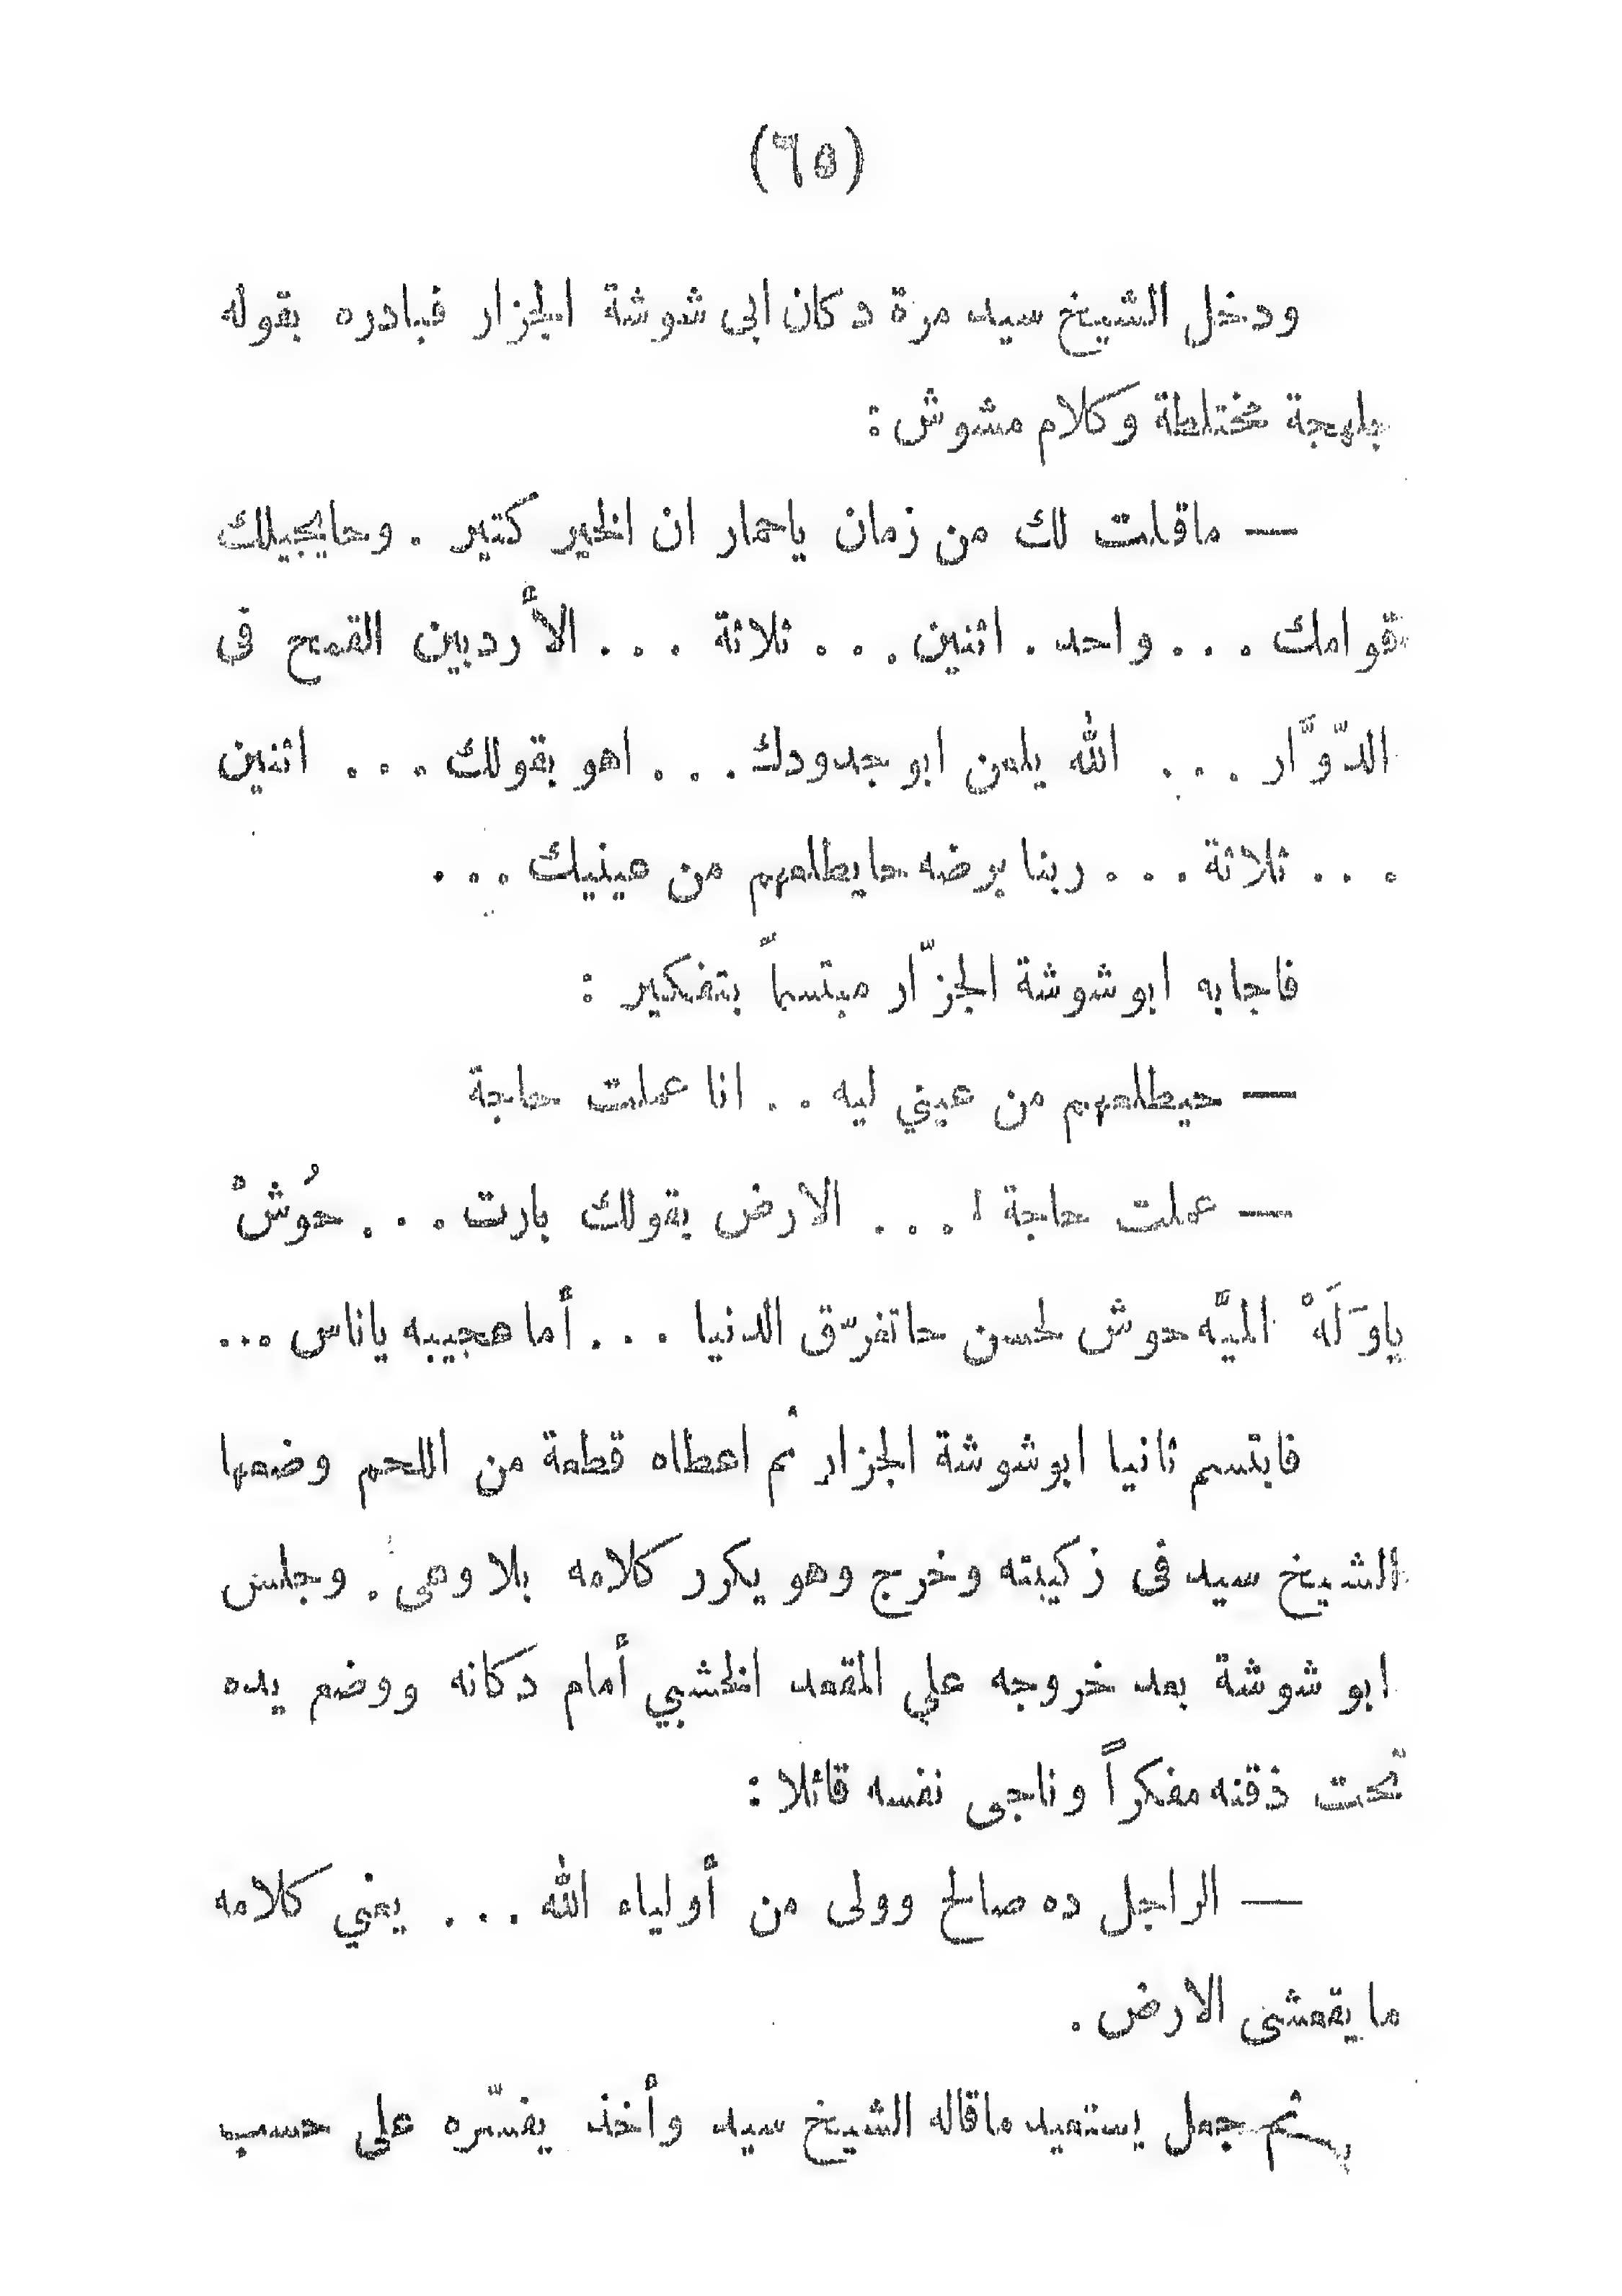 (٦٥)
ودخل الشيخ سيد مرة دكان ابى شوشة الجزار فبادره بقوله
بلهجة مختلطة وكلام مشوش :
— ماقلت لك من زمان ياحمار ان الخير كتير . وحايجيلك
قوامك ... واحد . اثنين ... ثلاثة ... الأردبين القمح فى
الدّوَّار ... الله يلعن ابو جدودك ... اهو بقولك ... اثنين
... ثلاثة ... ربنا برضه حايطلعهم من عينيك ...
فاجابه ابو شوشة الجزّار مبتسماً بتفكير :
— حيطلعهم من عيني ليه .. انا عملت حاجة
— عملت حاجة ! ... الارض بقولك بارت ... حُوشْ
ياوَلَهْ الميَّه حوش لحسن حاتغرّق الدنيا ... أما عجيبه ياناس ...
فابتسم ثانيا ابوشوشة الجزار ثم اعطاه قطعة من اللحم وضعها
الشيخ سيد فى زكيبته وخرج وهو يكرر كلامه بلا وعى . وجلس
ابو شوشة بعد خروجه علي المقعد الخشبي أمام دكانه ووضع يده
تحت ذقنه مفكراً وناجى نفسه قائلا :
— الراجل ده صالح وولى من أولياء الله ... يعني كلامه
ما يقعشى الارض .
ثم جعل يستعيد ماقاله الشيخ سيد وأخذ يفسّره على حسب